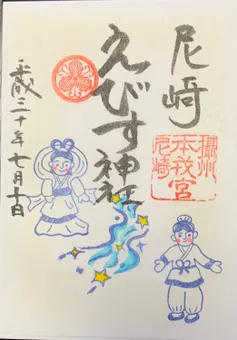 尼崎
えびす神社
平成三十年七月十日
攝州
本戎宮
尼崎